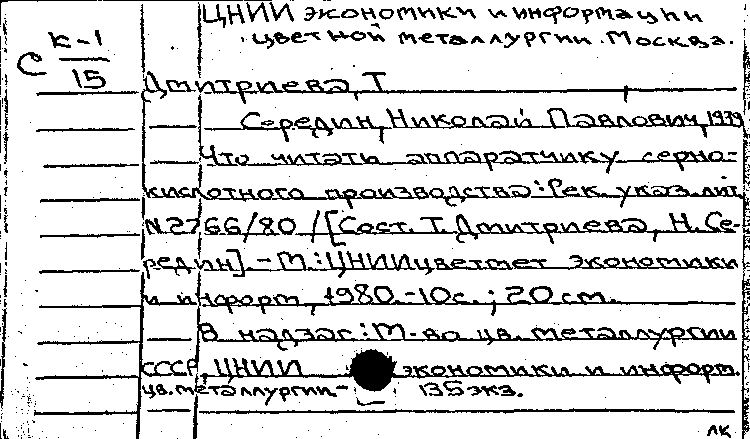 ЦНИИ экономики и информации
цветной металлургии. Москва.
С К-1
15
Дмитриева, Т
Середин, Николай Павлович, 1939
Что читать аппаратчику серно-
кислотного производства: Рек. указ. лит.
N2766/80 / [Сост. Т. Дмитриева, Н. Се-
редин]. - М.: ЦНИИцветмет экономики
и информ, 1980. - 10с.; 20 см.
В надзаг.: М-во цв. металлургии
СССР, ЦНИИ экономики и информ.
цв. металлургии. - 135 экз.
ЛК